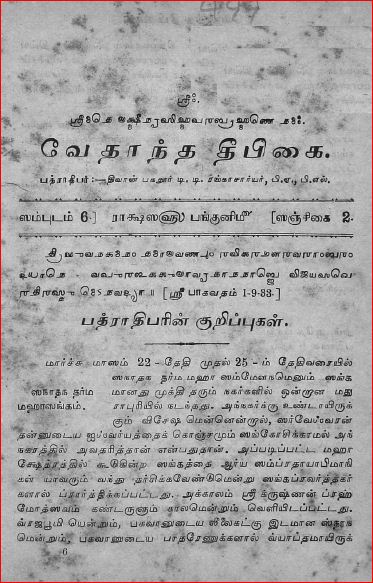 ஸ்ரீ:.
வேதாந்த தீபிகை.
பத்ராதிபர்:—திவான் பகதூர் டி. டி. ரங்காசார்யர், பி.ஏ., பி.எல்.
ஸம்புடம் 6.] ராக்ஷஸஹு பங்குனிமீ [ஸஞ்சிகை 2.
[ஸ்ரீ பாகவதம் 1-9-33.]
பத்ராதிபரின் குறிப்புகள்.
மார்ச்சு மாஸம் 22-தேதி முதல் 25-ம் தேதிவரையில்
ஸநாதந தர்ம மஹா ஸம்மேளநமெனும் ஸங்க
ஸநாதந தர்ம மானது முக்தி தரும் நகர்களில் ஒன்றான மது
மஹாஸங்கம். சாபுரியில் நடந்தது. அந்நகர்க்கு உண்டாயிருக்
கும் விசேஷ மென்னென்றால், ஸர்வேஸ்வரன்
தன்னுடைய ஐஸ்வர்யத்தைக் கொஞ்சமும் ஸங்கோசிக்காமல் அந்
நகரத்தில் அவதரித்தான் என்பதுதான். அப்படிப்பட்ட மஹா
க்ஷேத்ரத்தில் கூடுகின்ற ஸங்கத்தை ஆர்ய ஸம்ப்ரதாயாபிமாநி
கள் யாவரும் வந்து தரிசிக்கவேண்டுமென்று ஸங்கப்ரவர்த்தகர்
களால் ப்ரார்த்திக்கப்பட்டது. அக்காலம் ஸ்ரீ க்ருஷ்ணன் ப்ரஹ்
மோத்ஸவம் கண்டருளும் காலமென்றும் வெளியிடப்பட்டது.
வ்ரஜபூமி யென்றும், பகவானுடைய லீலைகட்கு இடமான ஸ்தாந
மென்றும், பகவானுடைய பாதரேணுக்களால் வ்யாப்தமாயிருக்
6